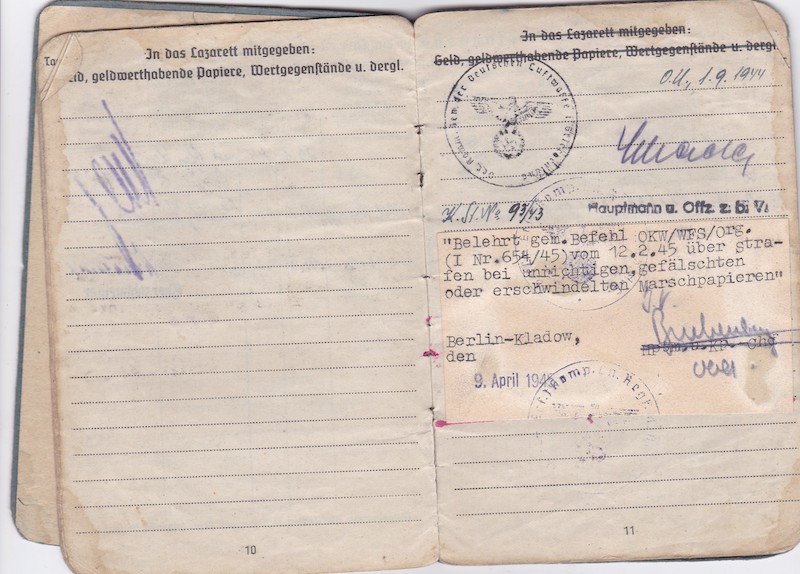 In das Lazarett mitgegeben:
Geld, geldwerthabende Papiere, Wertgegenstände u. dergl.
10
In das Lazarett mitgegeben:
Geld, geldwerthabende Papiere, Wertgegenstände u. dergl.
der Deutschen Luftwaffe
O.U., 1.9.1944
Hauptmann u. Offz. z. b. V.
K. St. N. 93/43
"Belehrt" gem. Befehl OKW/WFS/Org.
(I Nr. 654/45) vom 12.2.45 über stra-
fen bei unrichtigen, gefälschten
oder erschwindelten Marschpapieren"
Berlin-Kladow,
den
9. April 1945
11